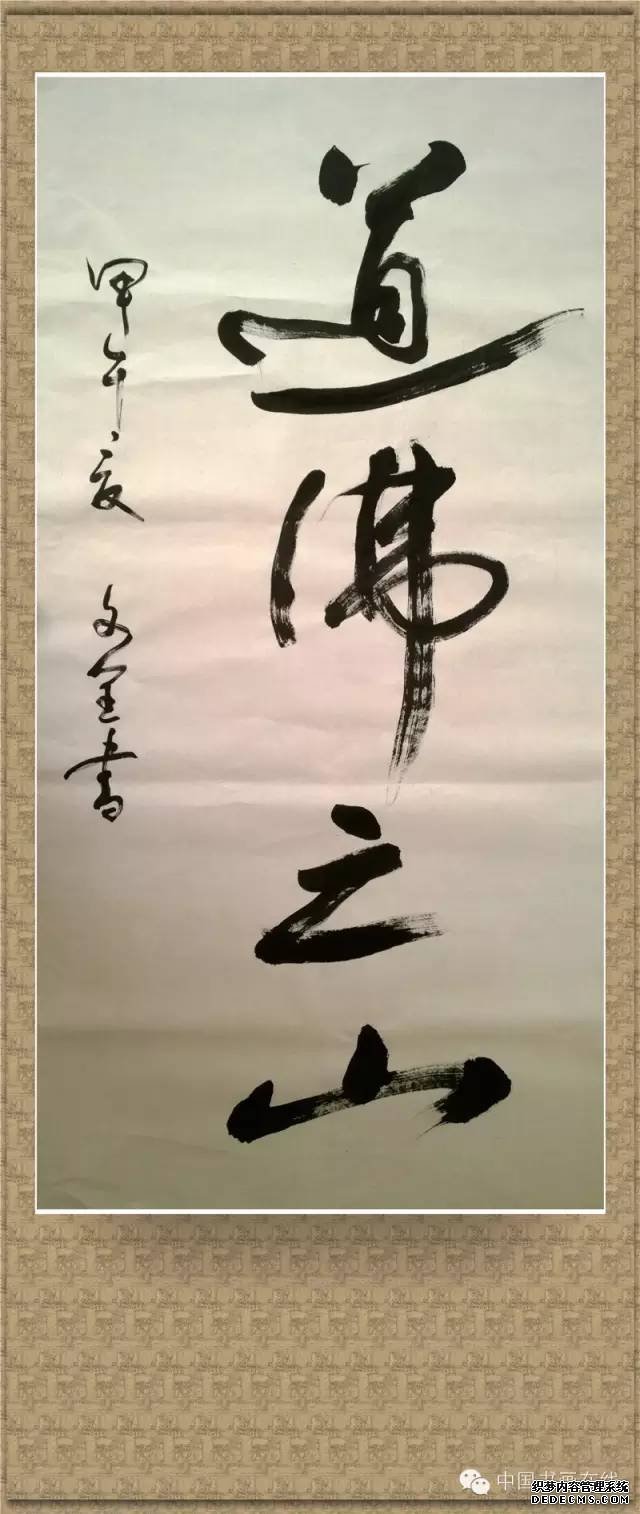 道佛之山
甲午夏 文全書
中国书画在线
织梦内容管理系统
DEDECMS.COM